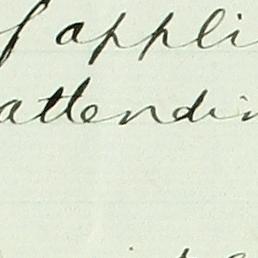 f appli
attendin